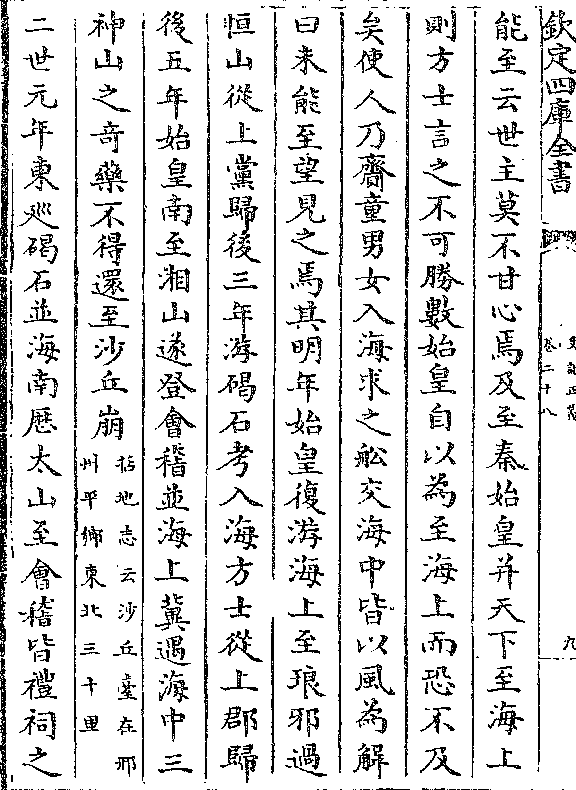 欽定四庫全書
卷二十八
九
能至云世主莫不甘心焉及至秦始皇并天下至海上
則方士言之不可勝數始皇自以為至海上而恐不及
矣使人乃齎童男女入海求之舩交海中皆以風為解
曰未能至望見之焉其明年始皇復游海上至琅邪過
恒山從上黨歸後三年游碣石考入海方士從上郡歸
後五年始皇南至湘山遂登會稽並海上冀遇海中三
神山之奇藥不得還至沙丘崩
括地志云沙丘臺在邢
州平鄉東北三十里
二世元年東廵碣石並海南厯太山至會稽皆禮祠之